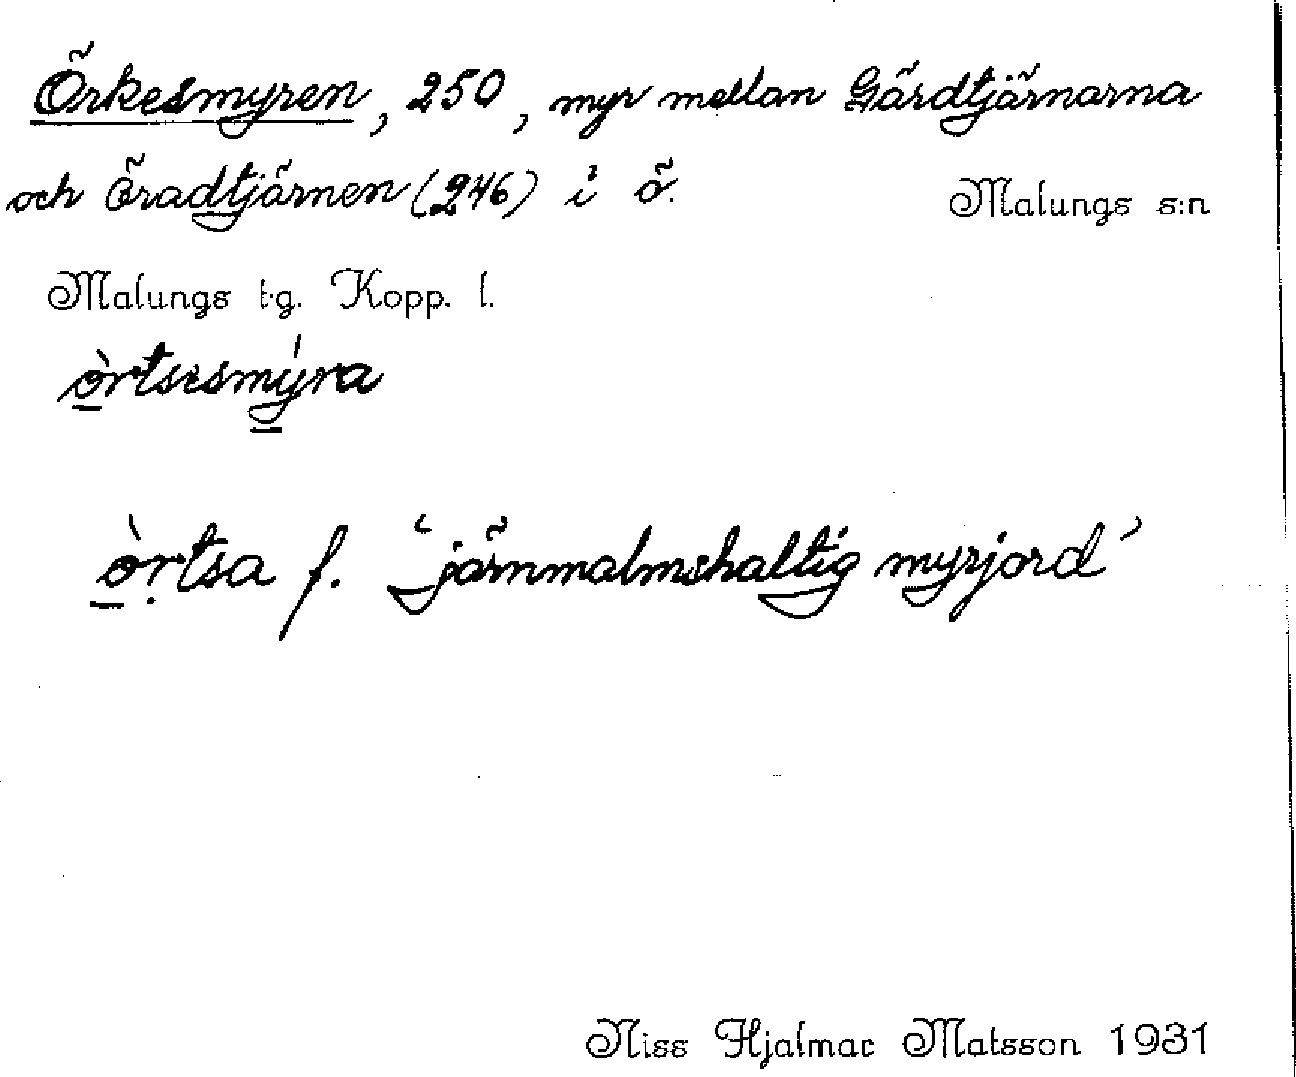 Örkesmyren, 250, myr mellan Gärdtjärnarna
och Öradtjärnen (246) i ö.
Malungs s:n
Malungs tg. Kopp. l.
òrtsesmýra
òrtsa f. ‘järnmalmshaltig myrjord’
Niss Hjalmar Matsson 1931